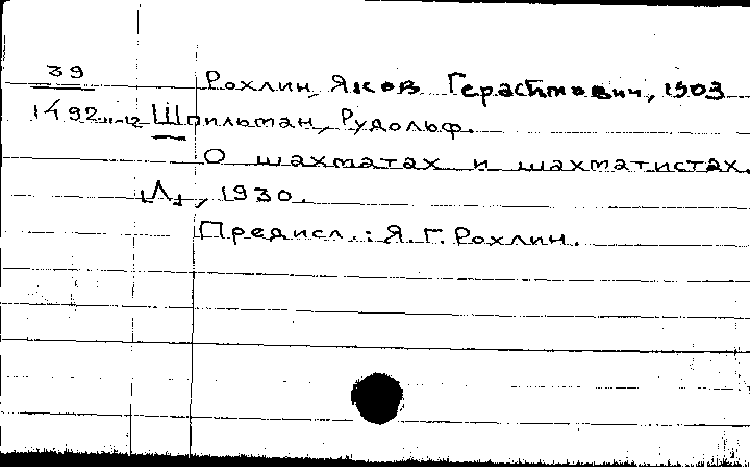 39 Рохлин, Яков Герасимович, 1903
1492 11-12 Шпильман, Рудольф.
О шахматах и шахматистах.
[Л.], 1930.
Предисл.: Я.Г. Рохлин.